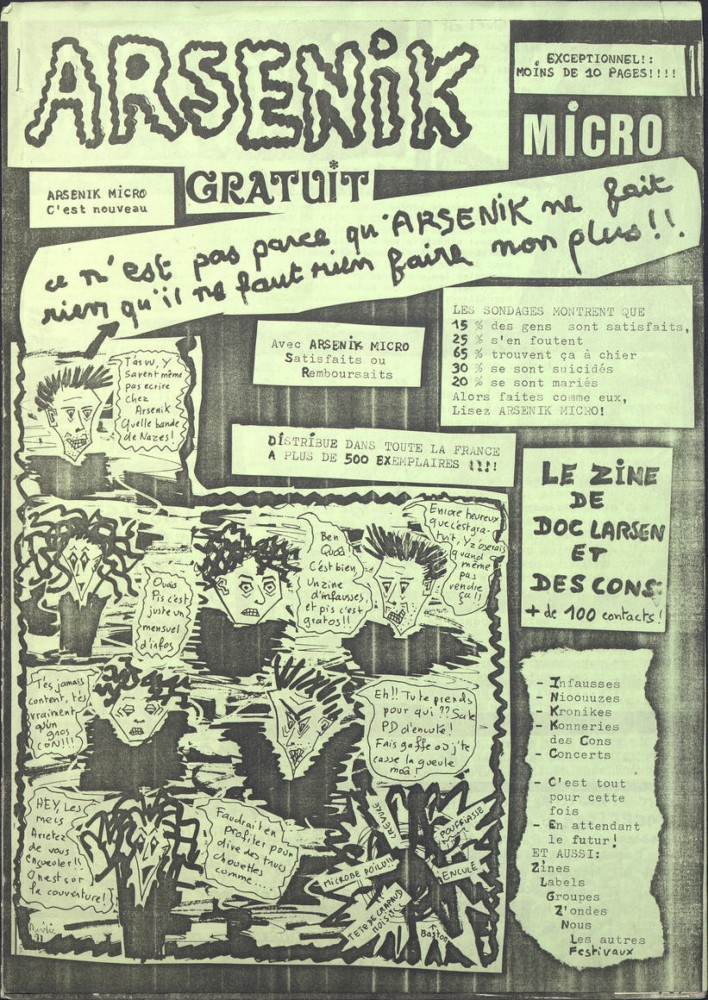 ARSENiK
EXCEPTIONNEL!:
MOINS DE 10 PAGES!!!!
MiCRO
ARSENIK MiCRO
C'est nouveau
GRATUiT
ce n'est pas parce qu'ARSENiK ne fait
rien qu'il ne faut rien faire non plus!!
LES SONDAGES MONTRENT QUE
15 % des gens sont satisfaits,
25 % s'en foutent
65 % trouvent ça à chier
30 % se sont suicidés
20 % se sont mariés
Alors faites comme eux,
Lisez ARSENIK MiCRO!
Avec ARSENiK MICRO
Satisfaits ou
Remboursaits
T'as vu, Y
Savent même
pas ecrire
chez
Arsenik
Quelle bande
de Nazes!
DiSTRIBUE DANS TOUTE LA FRANCE
A PLUS DE 500 EXEMPLAIRES !!!!
LE ZiNE
DE
DOC LARSEN
ET
DES CONS
+ de 100 contacts!
Ouais
Pis c'est
juste un
mensuel
d'infos
Ben
Quoi!
C'est bien
Un zine
d'infausses
et pis c'est
gratos!!
Encore heureux
que c'est gra-
tuit, Y z'oserais
quand
même
pas
vendre
ça!!
T'es jamais
content, t'es
vraiment
qu'un
gros
CON!!!
Eh!! Tu te prends
pour qui ?? Sale
PD d'enculé!
Fais gaffe où j'te
casse la gueule
moâ!
HEY, Les
mecs
Arretez
de vous
engueuler!!
On est sur
la couverture!
Faudrait en
profiter pour
dire des trucs
chouettes
comme...
CREVURE
POUFFIASSE
MICROBE POILU!!
ENCULE
TETE DE CRAPAUD
MOISI
Baston
- Infausses
- Nioouuzes
- Kronikes
- Konneries
des Cons
- Concerts
- C'est tout
pour cette
fois
- En attendant
le futur!
ET AUSSI:
Zines
Labels
Groupes
Z'ondes
Nous
Les autres
Festivaux